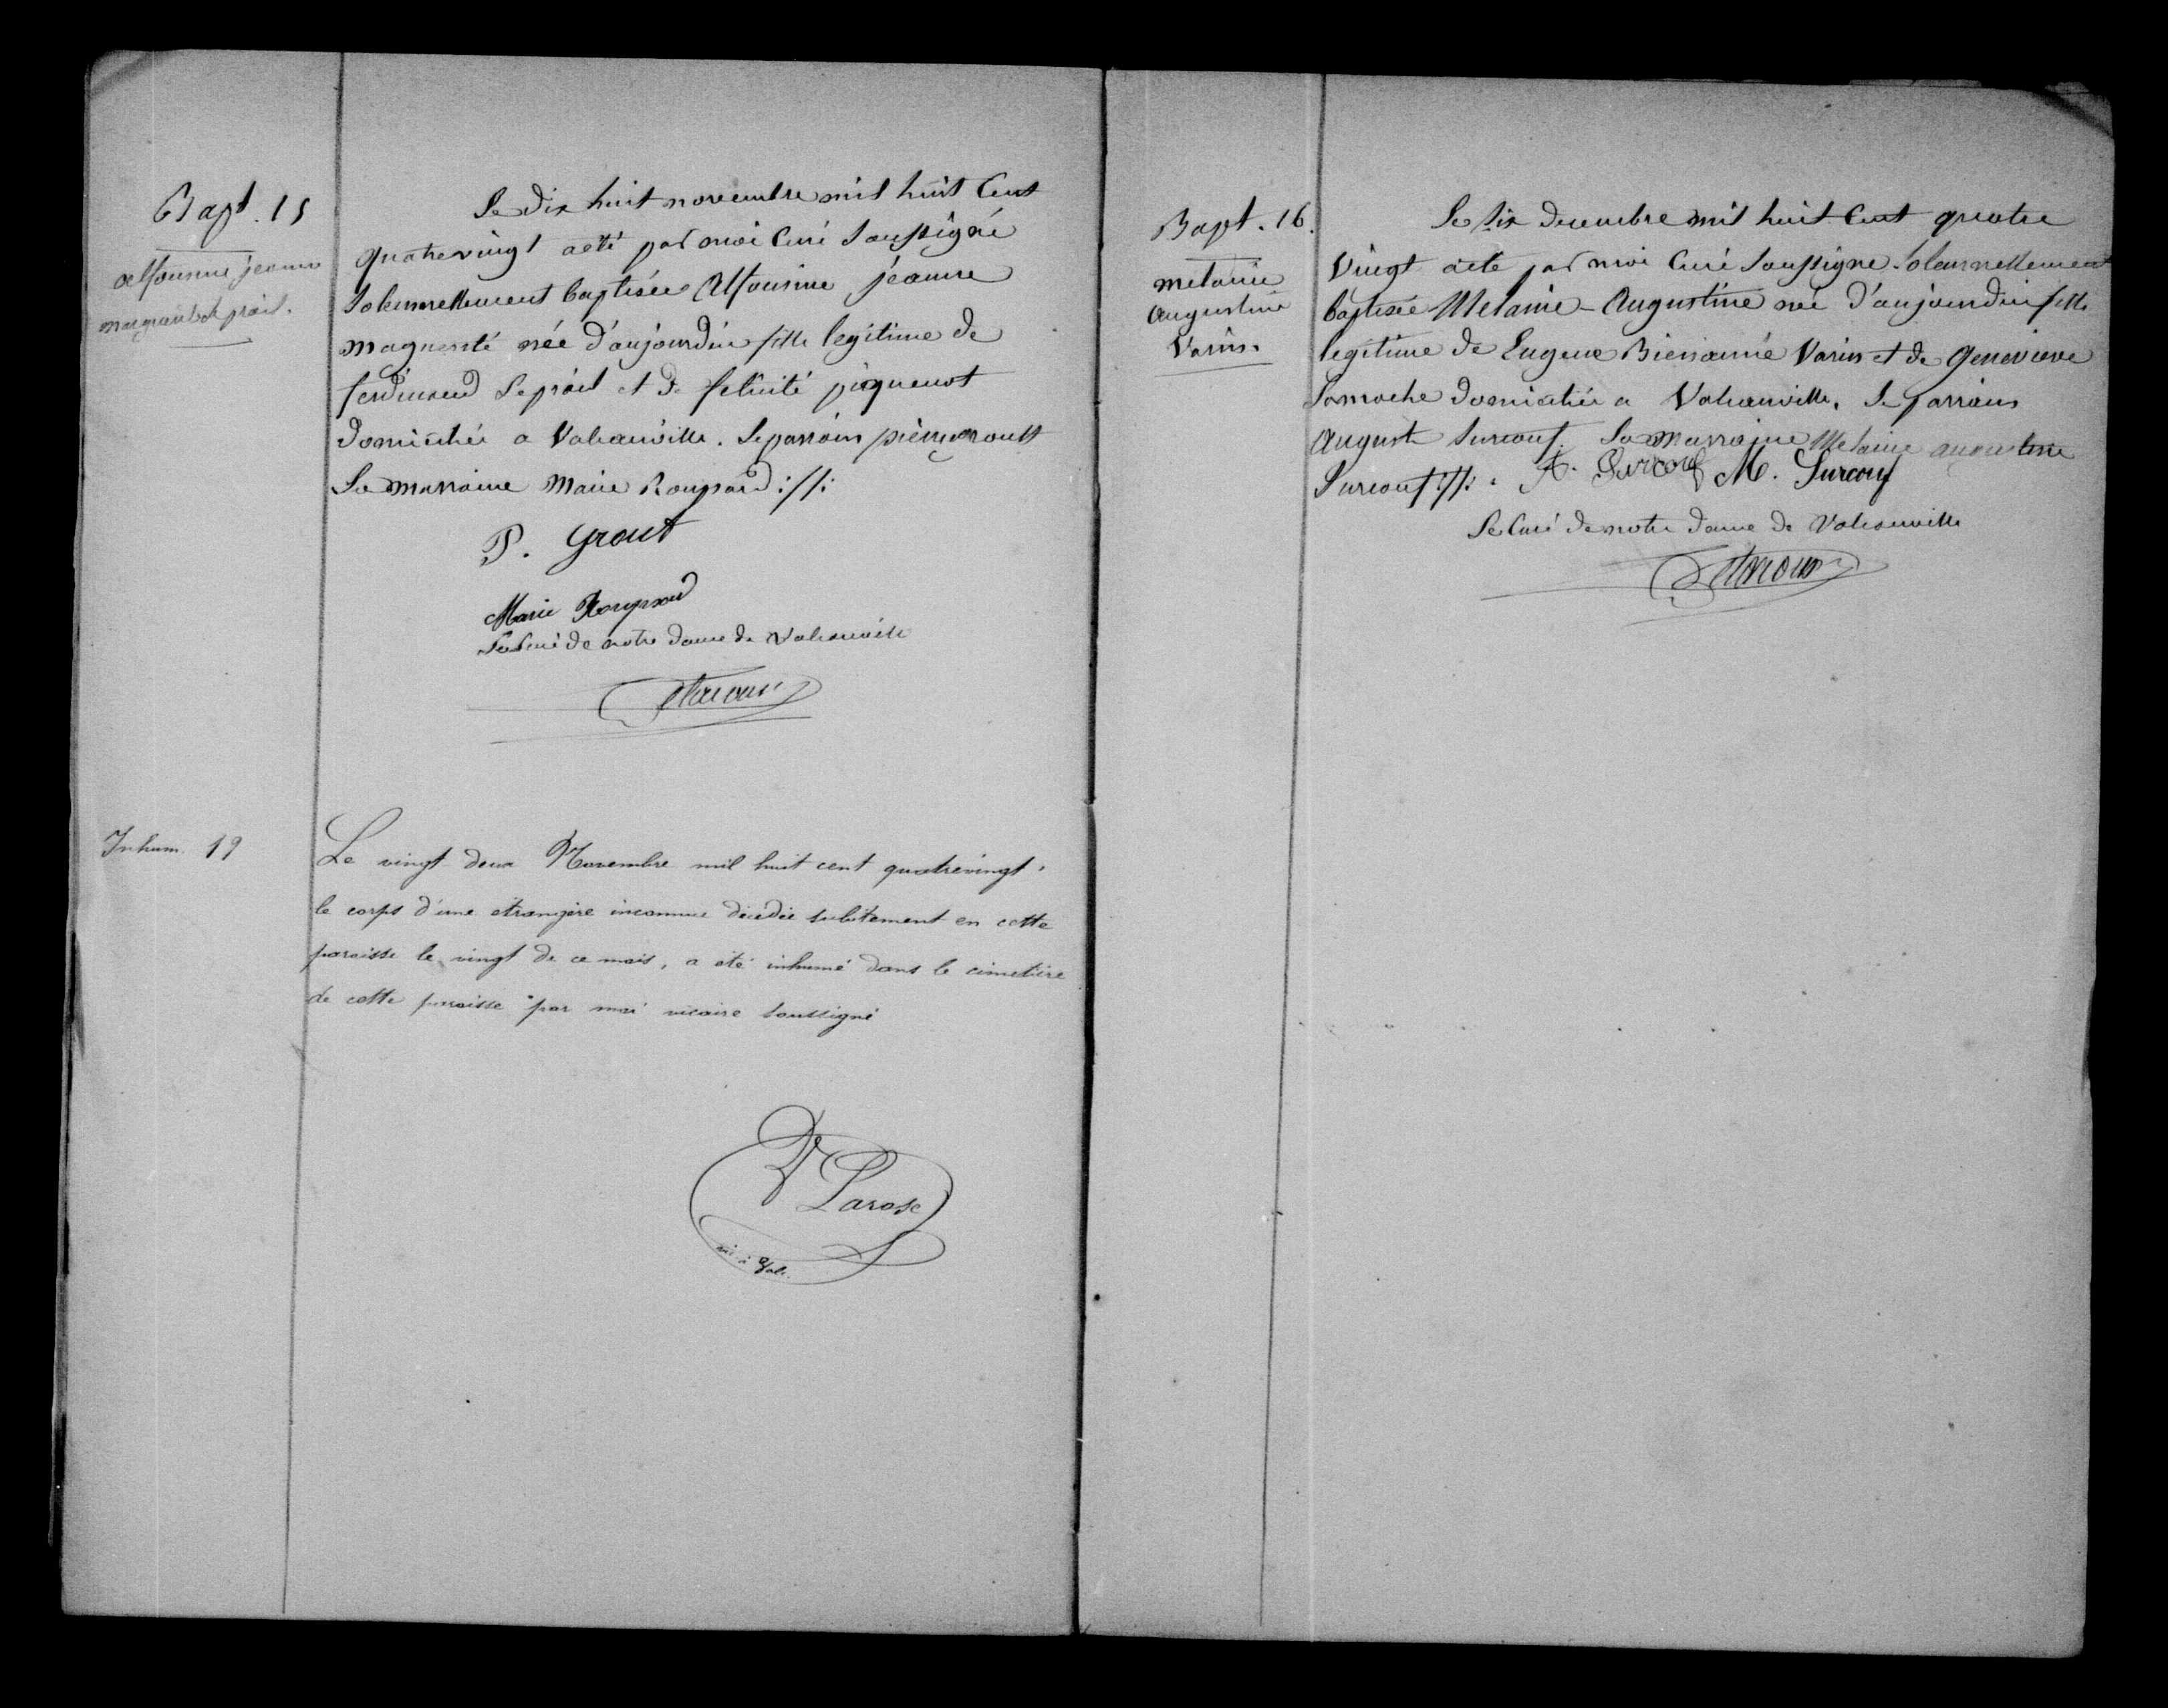 Bapt. 15
alfonsine jeanne
marguerite le prail.
Le dix huit novembre mil huit Cent
quatrevingt a eté par moi Curé Soussigné
Solennellement baptisée Alfonsine jéanne
Marguerite née d'aujourdui fille legitime de
ferdinand Leprail et de felicité piquenot
domiciliée a Valcanville. Le parrain pierre Groult
La marraine Marie Roupsard://:
P. Grout
Marie Roupsard
Le Curé de notre dame de Valcanville
Inhum. 19
Le vingt deux Novembre mil huit cent quatrevingt,
le corps d'une etrangère inconnue décédée subitement en cette
paroisse le vingt de ce mois, a été inhumé dans le cimetière
de cette paroisse par moi vicaire soussigné
V Larose
vic. à Valc.
Bapt. 16.
melanie
augustine
Varin.
Le six decembre mil huit Cent quatre
Vingt a eté par moi Curé Soussigné Solennellement
baptisée Melanie-Augustine née d'aujourdui fille
legitime de Eugene Bienaimé Varin et de Genevieve
Lamache domiciliée a Valcanville. Le parrain
August Surcouf. La marraine Melanie augustine
Surcouf://: A. Surcouf M. Surcouf
Le Curé de notre dame de Valcanville